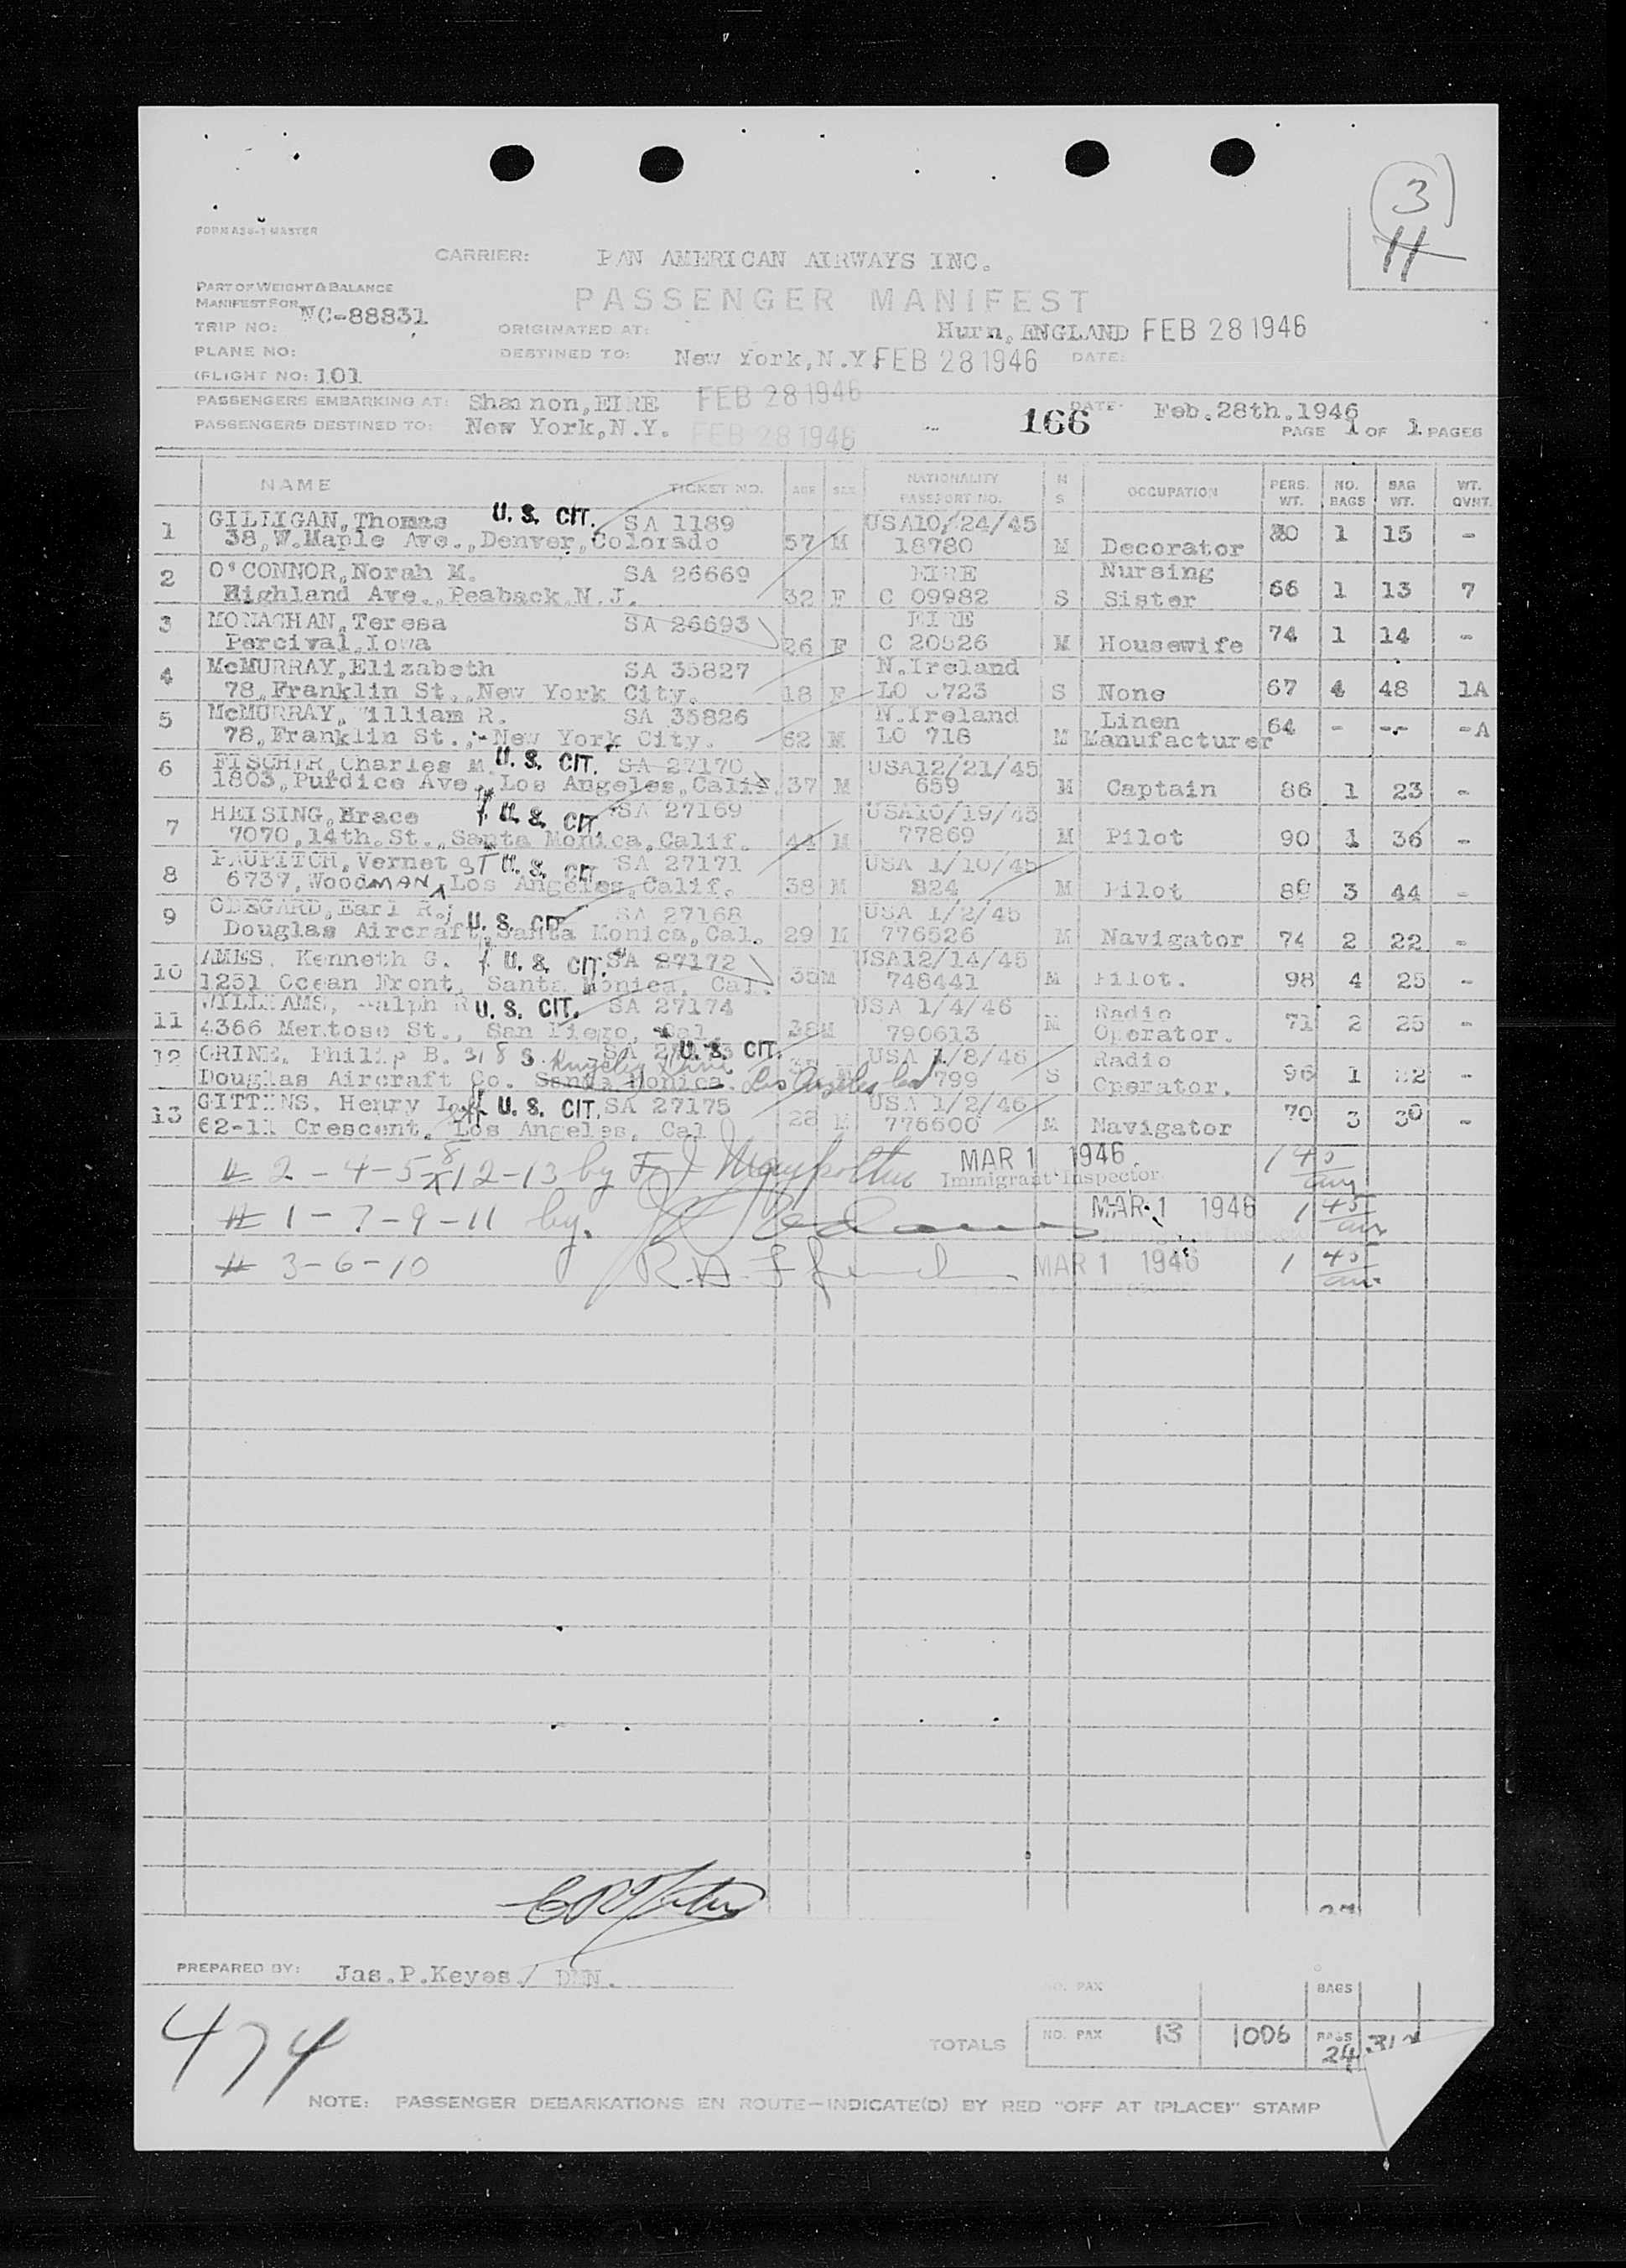 3
11
FORM A36-1 MASTER
CARRIER: PAN AMERICAN AIRWAYS INC.
PART OF WEIGHT & BALANCE
MANIFEST FOR
PASSENGER MANIFEST
TRIP NO: NC-88831
ORIGINATED AT: Hurn, ENGLAND FEB 28 1946
PLANE NO:
DESTINED TO: New York, N.Y. FEB 28 1946 DATE:
(FLIGHT NO: 101
PASSENGERS EMBARKING AT: Shannon, EIRE FEB 28 1946 166 DATE: Feb.28th.1946
PASSENGERS DESTINED TO: New York, N.Y. FEB 28 1946 PAGE 1 OF 1 PAGES
NAME TICKET NO. AGE SEX NATIONALITY PASSPORT NO. M S OCCUPATION PERS. WT. NO. BAGS BAG WT. WT. OVHT.
1 GILLIGAN, Thomas U. S. CIT. SA 1189 USA10/24/45
38, W.Maple Ave., Denver, Colorado 57 M 18780 M Decorator 80 1 15 -
2 O'CONNOR, Norah M. SA 26669 EIRE Nursing
Highland Ave., Peaback, N.J. 32 F C 09982 S Sister 66 1 13 7
3 MONAGHAN, Teresa SA 26693 EIRE
Percival, Iowa 26 F C 20526 M Housewife 74 1 14 -
4 McMURRAY, Elizabeth SA 35827 N.Ireland
78, Franklin St., New York City. 18 F LO 723 S None 67 4 48 1A
5 McMURRAY, William R. SA 35826 N.Ireland Linen
78, Franklin St., New York City. 62 M LO 718 M Manufacturer 64 - -- -A
6 FISCHER, Charles M. U. S. CIT. SA 27170 USA12/21/45
1803, Purdice Ave., Los Angeles, Calif. 37 M 659 M Captain 86 1 23 -
7 HEISING, Brace U. S. CIT. SA 27169 USA10/19/45
7070, 14th. St., Santa Monica, Calif. 44 M 77869 M Pilot 90 1 36 -
8 PAUPITCH, Vernet U. S. CIT. SA 27171 USA 1/10/45
6737, WOODMAN ST Los Angeles, Calif. 38 M 824 M Pilot 80 3 44 -
9 ODEGARD, Earl R. U. S. CIT. SA 27168 USA 1/2/46
Douglas Aircraft, Santa Monica, Cal. 29 M 776526 M Navigator 74 2 22 -
10 AMES, Kenneth G. U. S. CIT. SA 27172 USA12/14/45
1251 Ocean Front, Santa Monica, Cal. 35 M 748441 M Pilot. 98 4 25 -
11 WILLIAMS, Ralph R U. S. CIT. SA 27174 USA 1/4/46 Radio
4366 Mentose St., San Diego, Cal 38 M 790613 M Operator. 71 2 25 -
12 GRINE, Philip B. 318 S. Kingsley Drive U. S. CIT. USA 1/8/46 Radio
Douglas Aircraft Co. Santa Monica. Los Angeles Cal 799 S Operator. 96 1 22 -
13 GITTENS, Henry U. S. CIT. SA 27175 USA 1/2/46
62-11 Crescent, Los Angeles, Cal 28 M 776600 M Navigator 70 3 30 -
# 2-4-5-8-12-13 by F. J. MAR 1 1946 Immigrant Inspector 1 45 am
# 1-7-9-11 by. MAR 1 1946 1 45 am
# 3-6-10 MAR 1 1946 1 45 am
PREPARED BY: Jas.P.Keyes./
NO. PAX BAGS
474
TOTALS NO. PAX 13 1006 BAGS 24
NOTE: PASSENGER DEBARKATIONS EN ROUTE—INDICATE(D) BY RED "OFF AT (PLACE)" STAMP